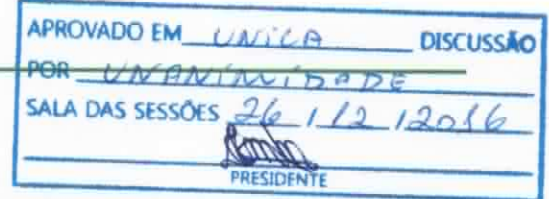 APROVADO EM UNICA DISCUSSÃO
POR UNANIMIDADE
SALA DAS SESSÕES 26 / 12 / 2016
PRESIDENTE